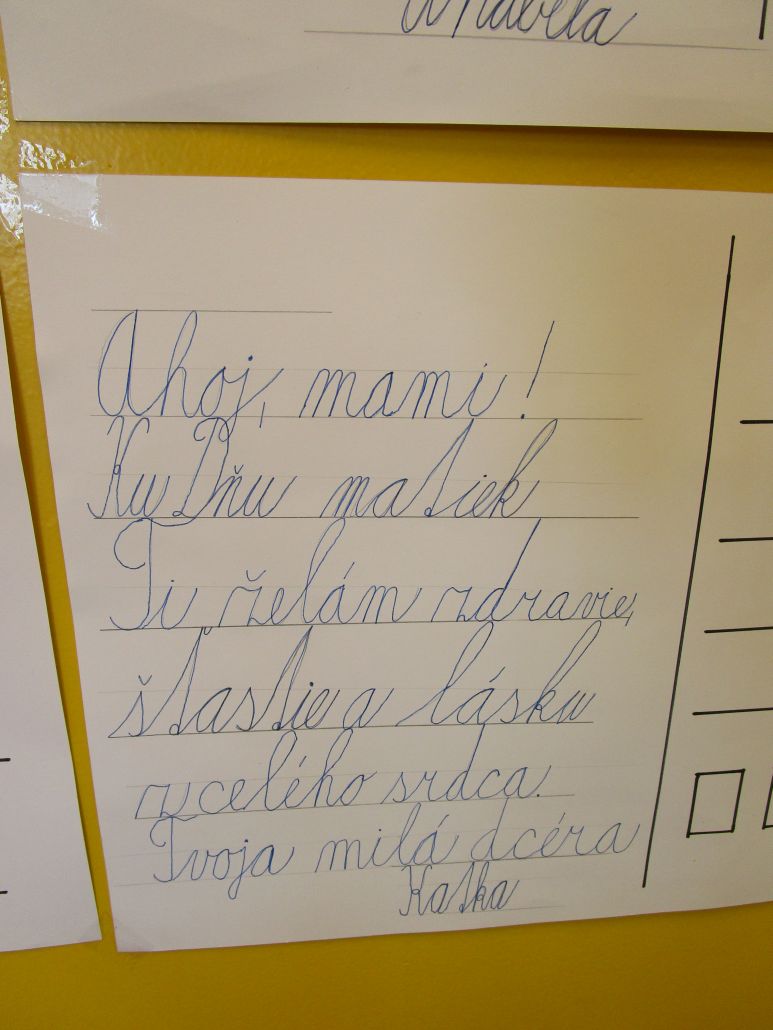 Ahoj, mami!
Ku Dňu matiek
Ti želám zdravie,
šťastie a lásku
z celého srdca.
Tvoja milá dcéra
Katka